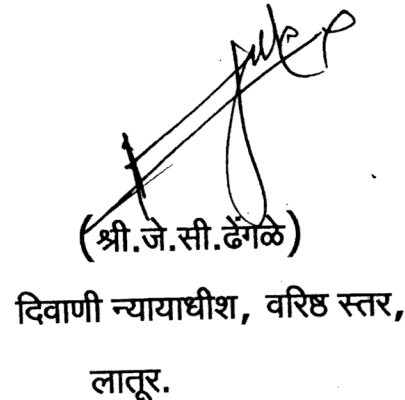 (श्री.जे.सी.ढेंगळे)
दिवाणी न्यायाधीश, वरिष्ठ स्तर,
लातूर.